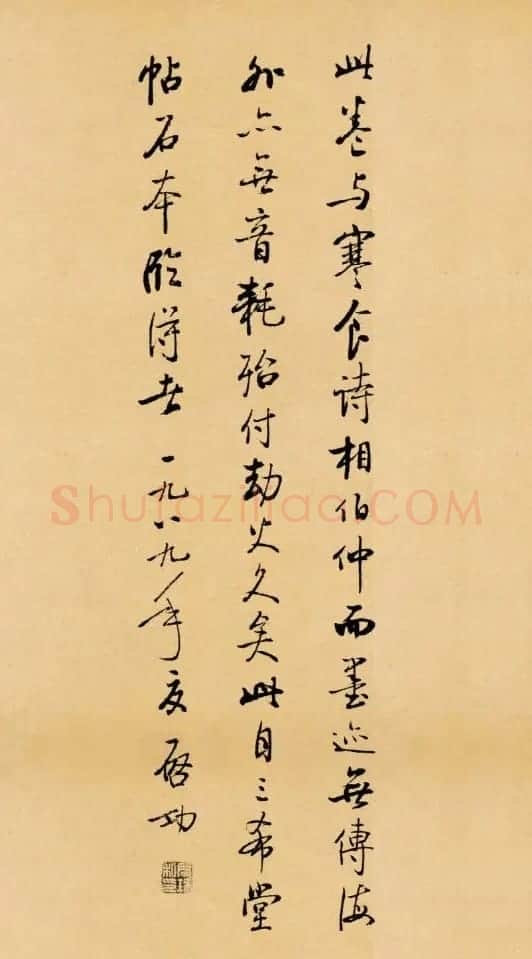 此卷与寒食诗相伯仲而墨迹無傳海
外亦無音耗殆付劫火久矣此自三希堂
帖石本臨得者一九八九年夏啓功
ShufaziHao.COM